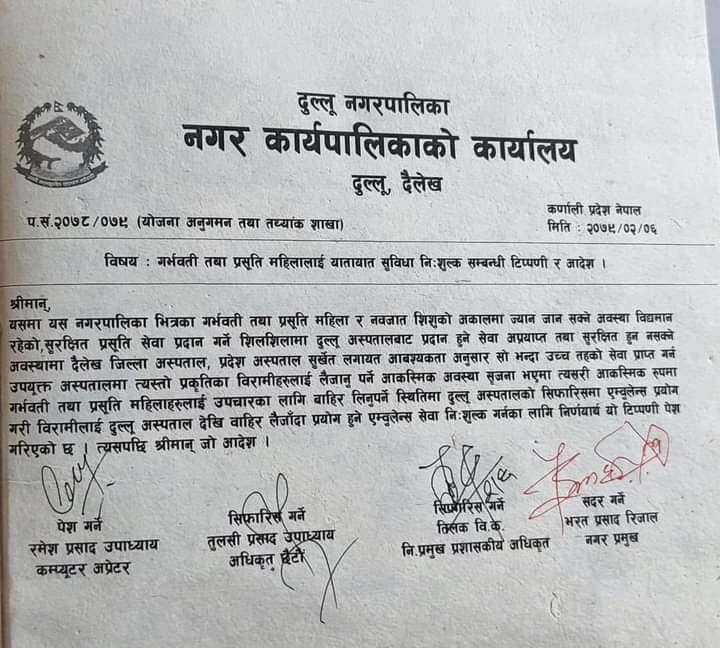 दुल्लू नगरपालिका
नगर कार्यपालिकाको कार्यालय
दुल्लू, दैलेख
कर्णाली प्रदेश नेपाल
प.सं.२०७८/०७९ (योजना अनुगमन तथा तथ्यांक शाखा)
मिति : २०७९/०२/०६
विषय : गर्भवती तथा प्रसूति महिलालाई यातायात सुविधा निःशुल्क सम्बन्धी टिप्पणी र आदेश ।
श्रीमान्,
यसमा यस नगरपालिका भित्रका गर्भवती तथा प्रसूति महिला र नवजात शिशुको अकालमा ज्यान जान सक्ने अवस्था विद्यमान
रहेको,सुरक्षित प्रसूति सेवा प्रदान गर्ने शिलशिलामा दुल्लू अस्पतालबाट प्रदान हुने सेवा अप्रयाप्त तथा सुरक्षित हुन नसक्ने
अवस्थामा दैलेख जिल्ला अस्पताल, प्रदेश अस्पताल सुर्खेत लगायत आबश्यकता अनुसार सो भन्दा उच्च तहको सेवा प्राप्त गर्न
उपयुक्त अस्पतालमा त्यस्तो प्रकृतिका विरामीहरुलाई लैजानु पर्ने आकस्मिक अवस्था सृजना भएमा त्यसरी आकस्मिक रुपमा
गर्भवती तथा प्रसूति महिलाहरुलाई उपचारका लागि बाहिर लिनुपर्ने स्थितिमा दुल्लू अस्पतालको सिफारिसमा एम्वुलेन्स प्रयोग
गरी विरामीलाई दुल्लू अस्पताल देखि वाहिर लैजाँदा प्रयोग हुने एम्वुलेन्स सेवा निःशुल्क गर्नका लागि निर्णयार्थ यो टिप्पणी पेश
गरिएको छ । त्यसपछि श्रीमान् जो आदेश ।
पेश गर्ने
रमेश प्रसाद उपाध्याय
कम्प्यूटर अप्रेटर
सिफारिस गर्ने
तुलसी प्रसाद उपाध्याय
अधिकृत छैटौं
सिफारिस गर्ने
वि.के.
नि.प्रमुख प्रशासकीय अधिकृत
सदर गर्ने
भरत प्रसाद रिजाल
नगर प्रमुख